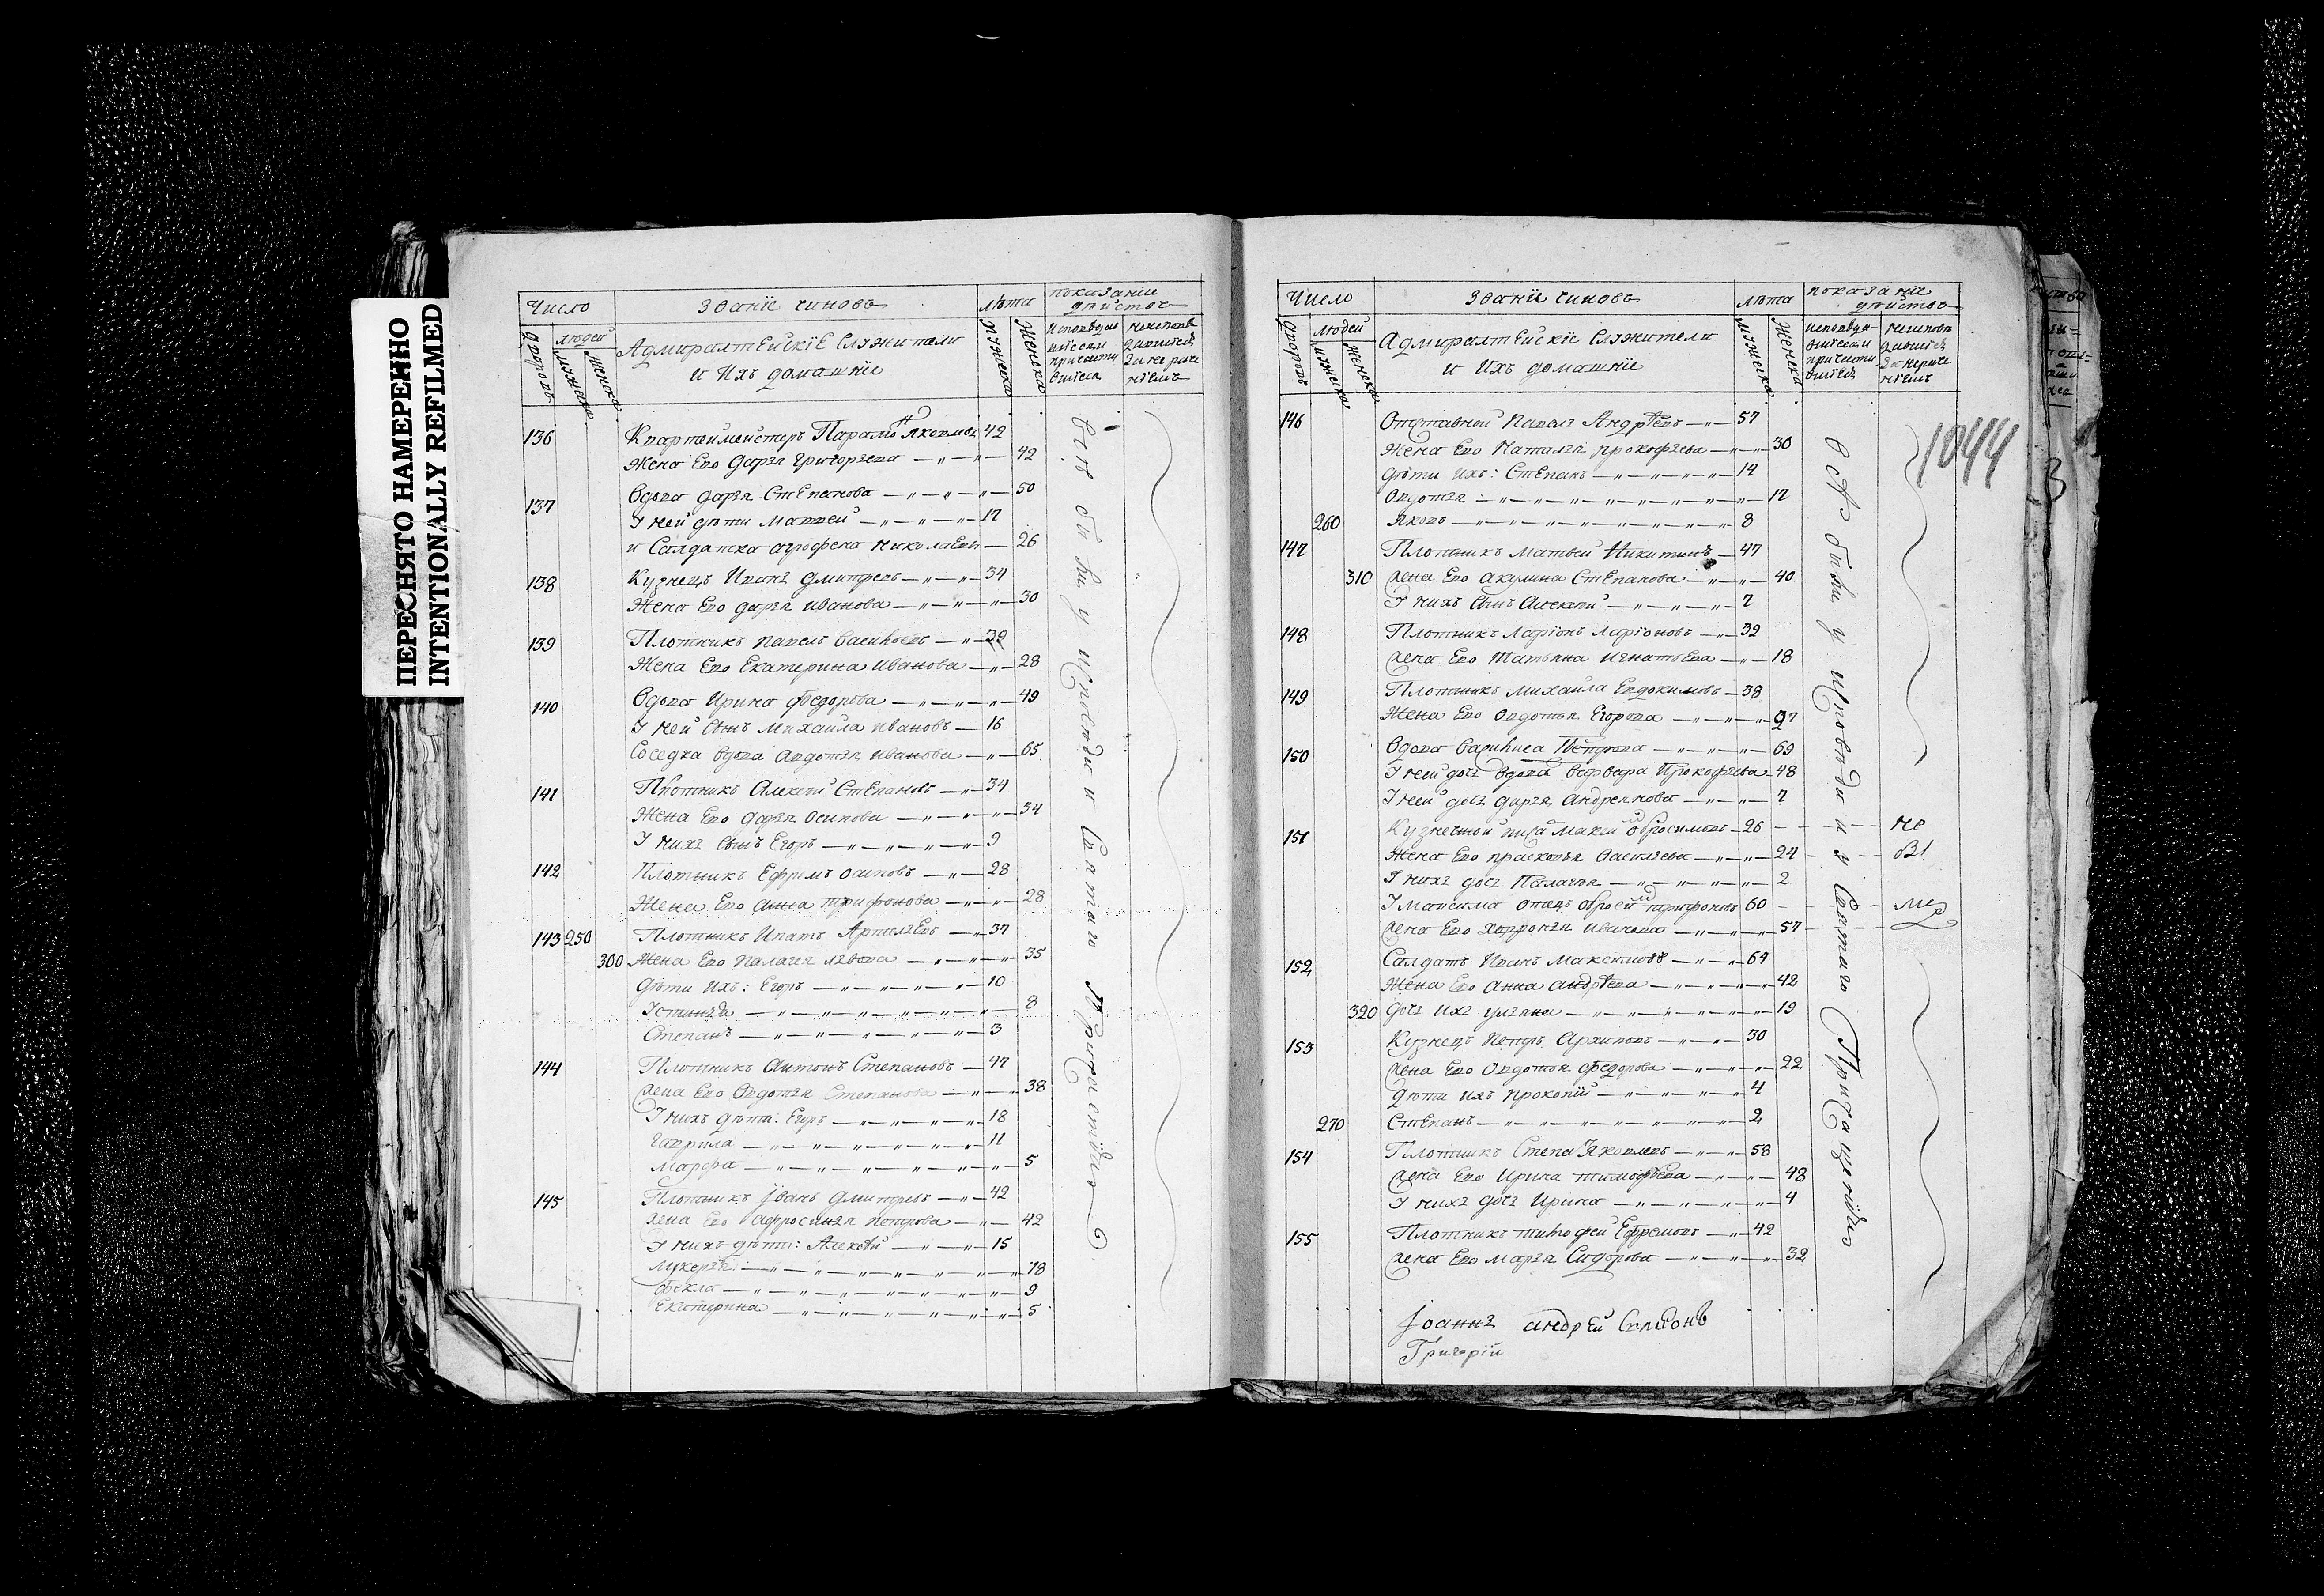 ПЕРЕСНЯТО НАМЕРЕННО
INTENTIONALLY REFILMED
Число Званïе чиновъ Лѣта показанïе дѣйство
дворовъ людей мужеска женска Адмиралтейскïе Служители мужеска женска
и Ихъ домашнïе
136 Квартеймейстеръ Парамо Яковлев 42
Жена Ево Дарья Григорьева 42
137 Вдова Дарья Степанова 50
У ней дѣти Матвей 17
и Салдатка агрофена николаева 26
138 Кузнецъ Иванъ Дмитрев 34
Жена Ево дарья иванова 30
139 Плотникъ павелъ Васильевъ 32
Жена Ево Екатерина иванова 28
140 Вдова Ирина федорова 49
У ней сынъ Михайла ивановъ 16
Соседка вдова авдотья иванова 65
141 Плотникъ Алексей Степановъ 34
Жена Ево дарья осипова 34
У нихъ сынъ Егоръ 9
142 Плотникъ Ефримъ осиповъ 28
Жена Ево анна трифонова 28
143 250 Плотникъ Ипатъ 37
300 Жена Ево палагея львова 35
дѣти Ихъ: Егоръ 10
Устинья 8
Степанъ 3
144 Плотникъ антонъ Степановъ 47
жена Ево авдотья Степанова 38
У нихъ дѣти: Егоръ 18
гаврила 11
марфа 5
145 Плотникъ Iванъ Дмитревъ 42
жена Ево афросинья петрова 42
У нихъ дѣти: Алексѣй 15
лукерья 18
фекла 9
Екатерина 5
всѣ были у исповѣди и святаго причастïя
Число Званïе чиновъ лѣта показанïе дѣйство
дворовъ людей мужеска женска Адмиралтейскïе Служители мужеска женска
и Ихъ домашнïе
1044
146 Отставной павелъ Андрѣевъ 57
Жена Ево Наталья прокофьева 30
дѣти ихъ: Степанъ 14
авдотья 17
260 яковъ 8
147 Плотникъ матвей Никитинъ 47
310 жена Ево акулина Степанова 40
У нихъ сынъ алексей 7
148 Плотникъ ларïонъ ларïоновъ 32
жена Ево татьяна игнатьева 18
149 Плотникъ михайла Евдокимовъ 38
Жена Ево авдотья Егорова 27
150 Вдова Василиса Петрова 69
У ней дочь вдова варвара Прокофьева 48
У ней дочь дарья андреянова 7
151 Кузнечной 26 не
Жена Ево прасковья васильева 24 бы
У нихъ дочь Палагея 2
У максима отецъ трифоновъ 60 ли
жена Ево иванова 57
152 Салдатъ Иванъ максимовъ 64
Жена Ево анна андрѣева 42
320 дочь ихъ ульяна 19
153 Кузнецъ Петръ Архиповъ 30
жена Ево авдотья федорова 22
дѣти ихъ прокопïй 4
270 Степанъ 2
154 Плотникъ Степа Яковлевъ 58
жена Ево ирина тимофѣева 48
У нихъ дочь Ирина 4
155 Плотникъ тимофей Ефремовъ 42
жена Ево марья Сидорова 32
всѣ были у исповѣди и у святаго причащенïя
Iоаннъ андрей
Григорïй